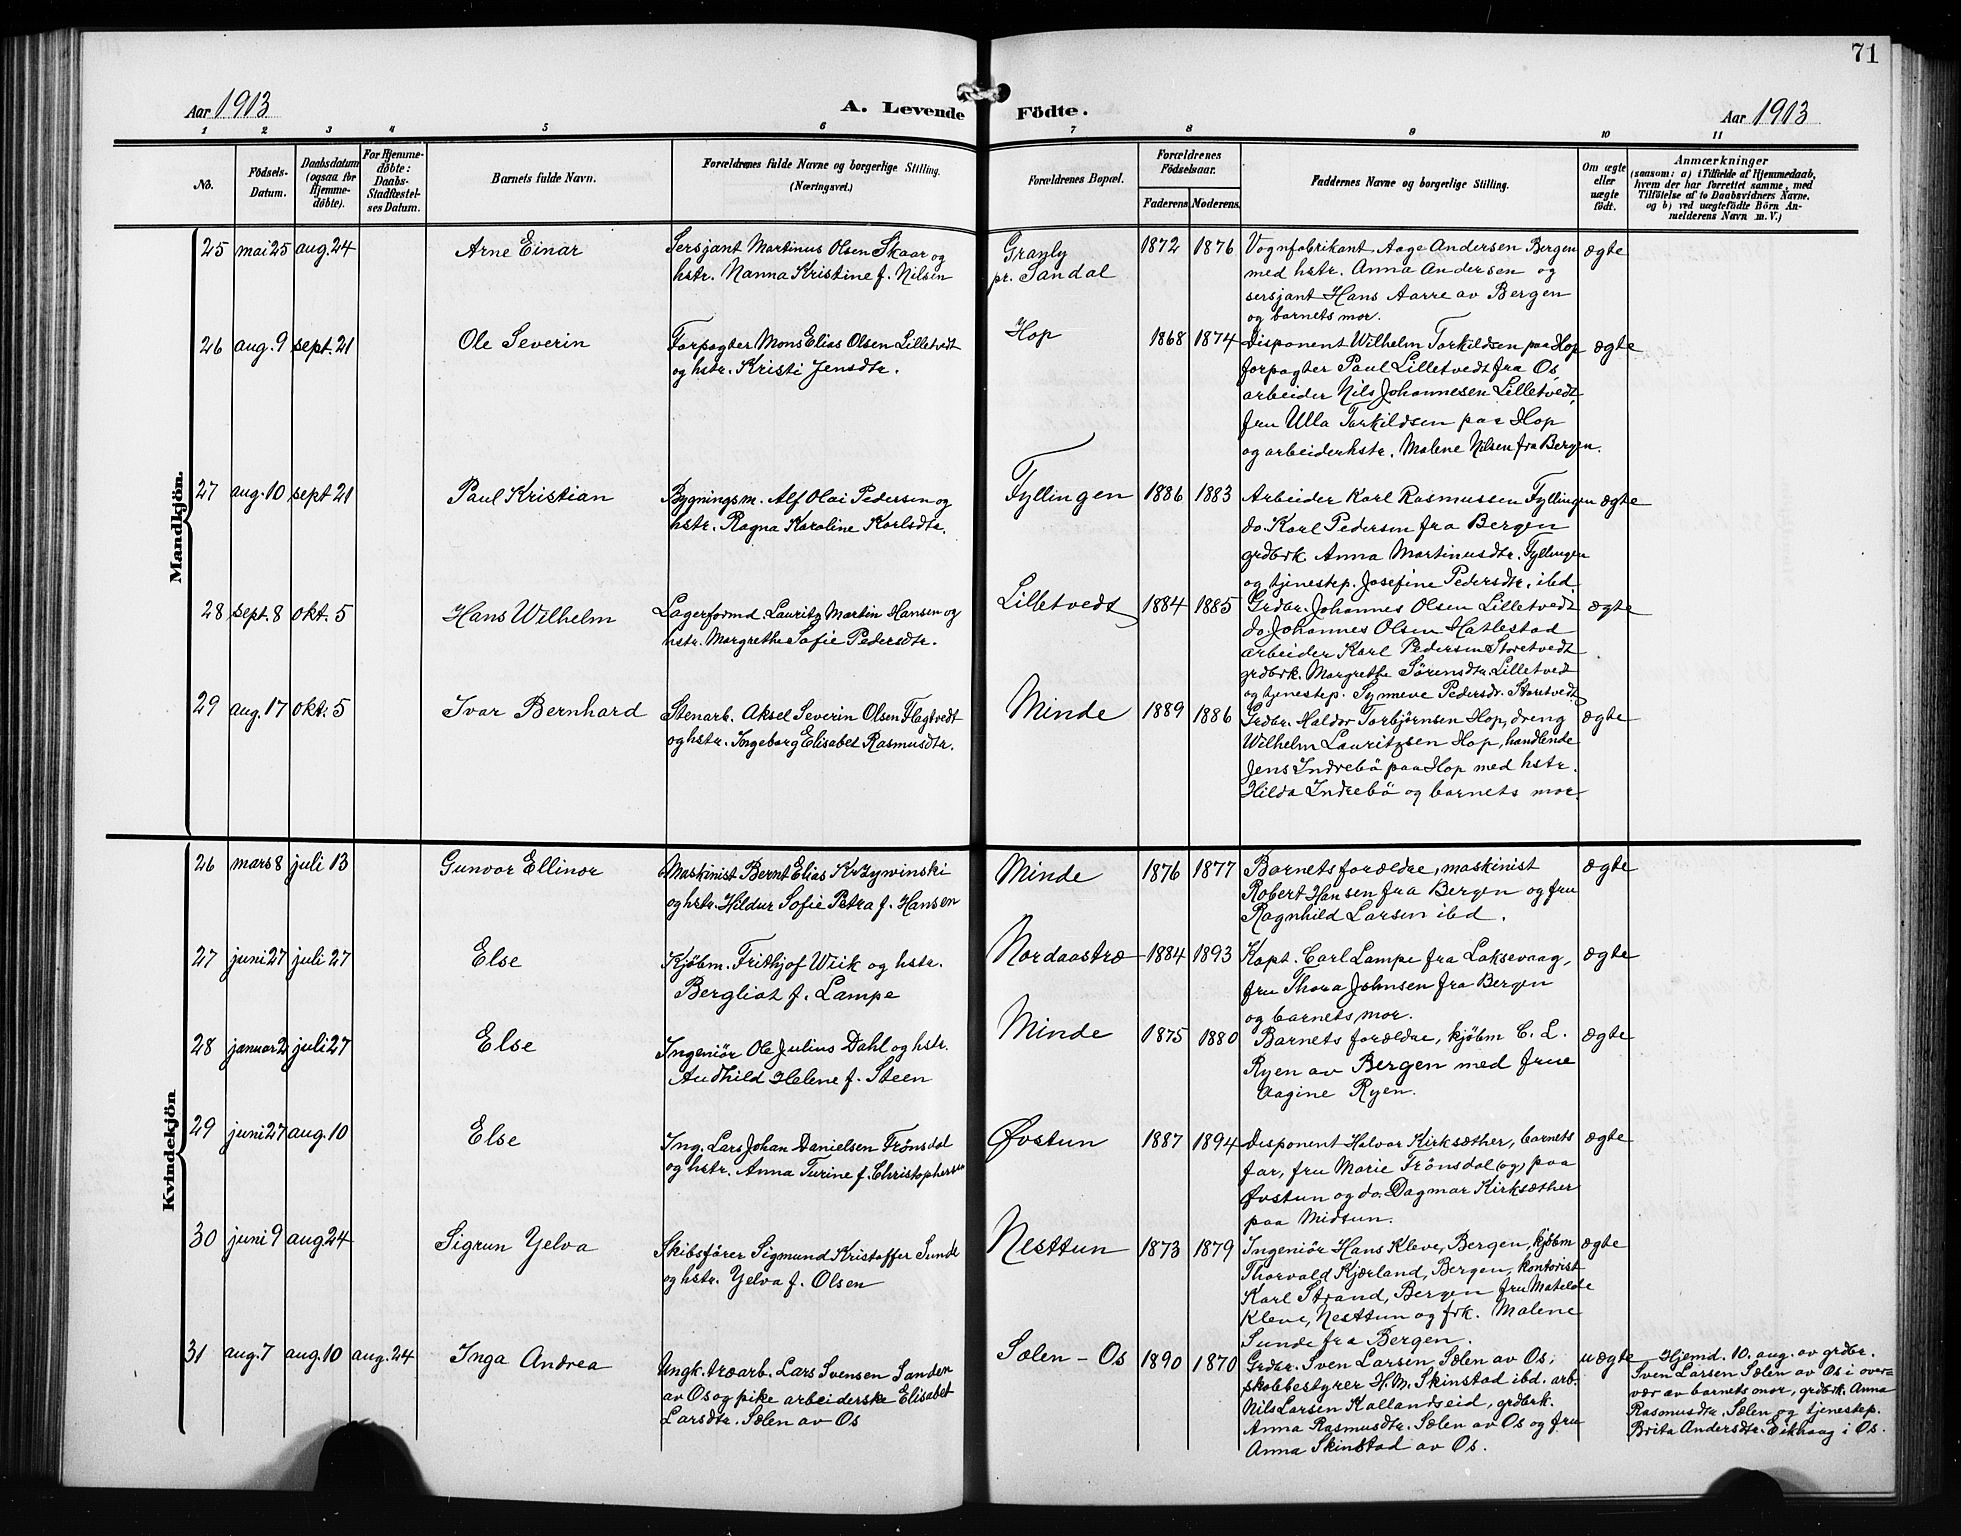 71
Aar 1913
A. Levende Födte.
Aar 1913
1 2 3 4 5 6 7 8 9 10 11
No.
Födsels-
Datum.
Daabsdatum
(ogsaa for
Hjemme-
döbte).
For Hjemme-
döbte:
Daabs-
Stadfæstel-
ses Datum.
Barnets fulde Navn.
Forældrenes fulde Navne og borgerlige Stilling.
(Næringsvei.)
Forældrenes Bopæl.
Forældrenes
Födselsaar.
Faderens. Moderens.
Faddernes Navne og borgerlige Stilling.
Om ægte
eller
uægte
födt.
Anmærkninger
(saasom: a) i Tilfælde af Hjemmedaab,
hvem der har forrettet samme, med
Tilföielse af to Daabsvidners Navne.
og b) ved uægtefödte Börn An-
melderens Navn m. V.)
Mandkjön.
25 mai 25 aug. 24 Arne Einar
Sersjant Martinus Olsen Skaar og
hstr. Nanna Kristine f. Nilsen
Granly
pr. Sandal
1872 1876
Vognfabrikant Aage Andersen Bergen
med hstr. Anna Andersen og
sersjant Hans Aarre av Bergen
og barnets mor.
ægte
26 aug. 9 sept. 21 Ole Severin
Forpagter Mons Elias Olsen Lilletvedt
og hstr. Kristi Jensdtr.
Hop
1868 1874
Disponent Wilhelm Torkildsen paa Hop
forpagter Paul Lilletvedt fra Os
arbeider Nils Johannesen Lilletvedt,
fru Ulla Torkildsen paa Hop
og arbeiderhstr. Malene Nilsen fra Bergen.
ægte
27 aug. 10 sept 21 Paul Kristian
Bygningsm. Alf Olai Pedersen og
hstr. Ragna Karoline Karlsdtr.
Fyllingen
1886 1883
Arbeider Karl Rasmussen Fyllingen
do. Karl Pedersen fra Bergen
grdbrk Anna Martinusdtr. Fyllingen
og tjenestep. Josefine Pedersdtr. ibd.
ægte
28 sept. 8 okt. 5 Hans Wilhelm
Lagerformd. Lauritz Martin Hansen og
hstr. Margrethe Sofie Pedersdtr.
Lilletvedt
1884 1885
Grdbr. Johannes Olsen Lilletvedt
do Johannes Olsen Hatlestad
arbeider Karl Pedersen Storetvedt
grdbrk. Margrethe Sørensdtr. Lilletvedt
og tjenestep. Synneve Pedersdr. Storetvedt
ægte
29 aug. 17 okt. 5 Ivar Bernhard
Stenarb. Aksel Severin Olsen Flagtvedt
og hstr. Ingeborg Elisabet Rasmusdtr.
Minde
1889 1886
Grdbr. Haldor Torbjørnsen Hop, dreng
Wilhelm Lauritzsen Hop, handlende
Jens Indrebö paa Hop med hstr.
Hilda Indrebö og barnets mor.
ægte
Kvindekjön
26 mars 8 juli 13 Gunvor Ellinor
Maskinist Bernt Elias Krzywinski
og hstr. Hildur Sofie Petra f. Hansen
Minde
1876 1877
Barnets forældre, maskinist
Robert Hansen fra Bergen og fru
Ragnhild Larsen ibd.
ægte
27 juni 27 juli 27 Else
Kjøbm. Frithjof Wiik og hstr.
Bergliot f. Lampe
Nordaastræ
1884 1893
Kapt. Carl Lampe fra Laksevaag,
fru Thora Johnsen fra Bergen
og barnets mor.
ægte
28 januar 2 juli 27 Else
Ingeniör Ole Julius Dahl og hstr.
Audhild Helene f. Steen
Minde
1875 1880
Barnets forældre, kjøbm C. L.
Ryen av Bergen med frue
Aagine Ryen.
ægte
29 juni 27 aug. 10 Else
Ing. Lars Johan Danielsen Frönsdal
og hstr. Anna Turine f. Christophersen
Øvstun
1887 1894
Disponent Halvor Kirksæther, barnets
far, fru Marie Frönsdal (og) paa
Øvstun og do. Dagmar Kirksæther
paa Midtun.
ægte
30 juni 9 aug 24 Sigrun Yelva
Skibsfører Sigmund Kristoffer Sunde
og hstr. Yelva f. Olsen
Nesttun
1873 1879
Ingeniör Hans Kleve, Bergen, kjøbm
Thorvald Kjærland, Bergen, kontorist
Karl Strand, Bergen fru Matilde
Kleve, Nesttun og frk. Malene
Sunde fra Bergen.
ægte
31 aug. 7 aug. 10 aug. 24 Inga Andrea
Ungk. træarb. Lars Svensen Sanden
av Os og pike arbeiderske Elisabet
Larsdtr. Sælen av Os
Sælen - Os
1890 1870
Grdbr. Sven Larsen Sælen av Os,
skolebestyrer H. M. Skinstad ibd. arb.
Nils Larsen Kallandseid, grdbrk.
Anna Rasmusdtr. Sælen av Os og fru
Anna Skinstad av Os.
uægte
Hjemd. 10. aug. av grdbr.
Sven Larsen Sælen av Os i over-
vær av barnets mor, grdbrk. Anna
Rasmusdtr. Sælen og tjenestep.
Brita Andersdtr. Eikhaag i Os.